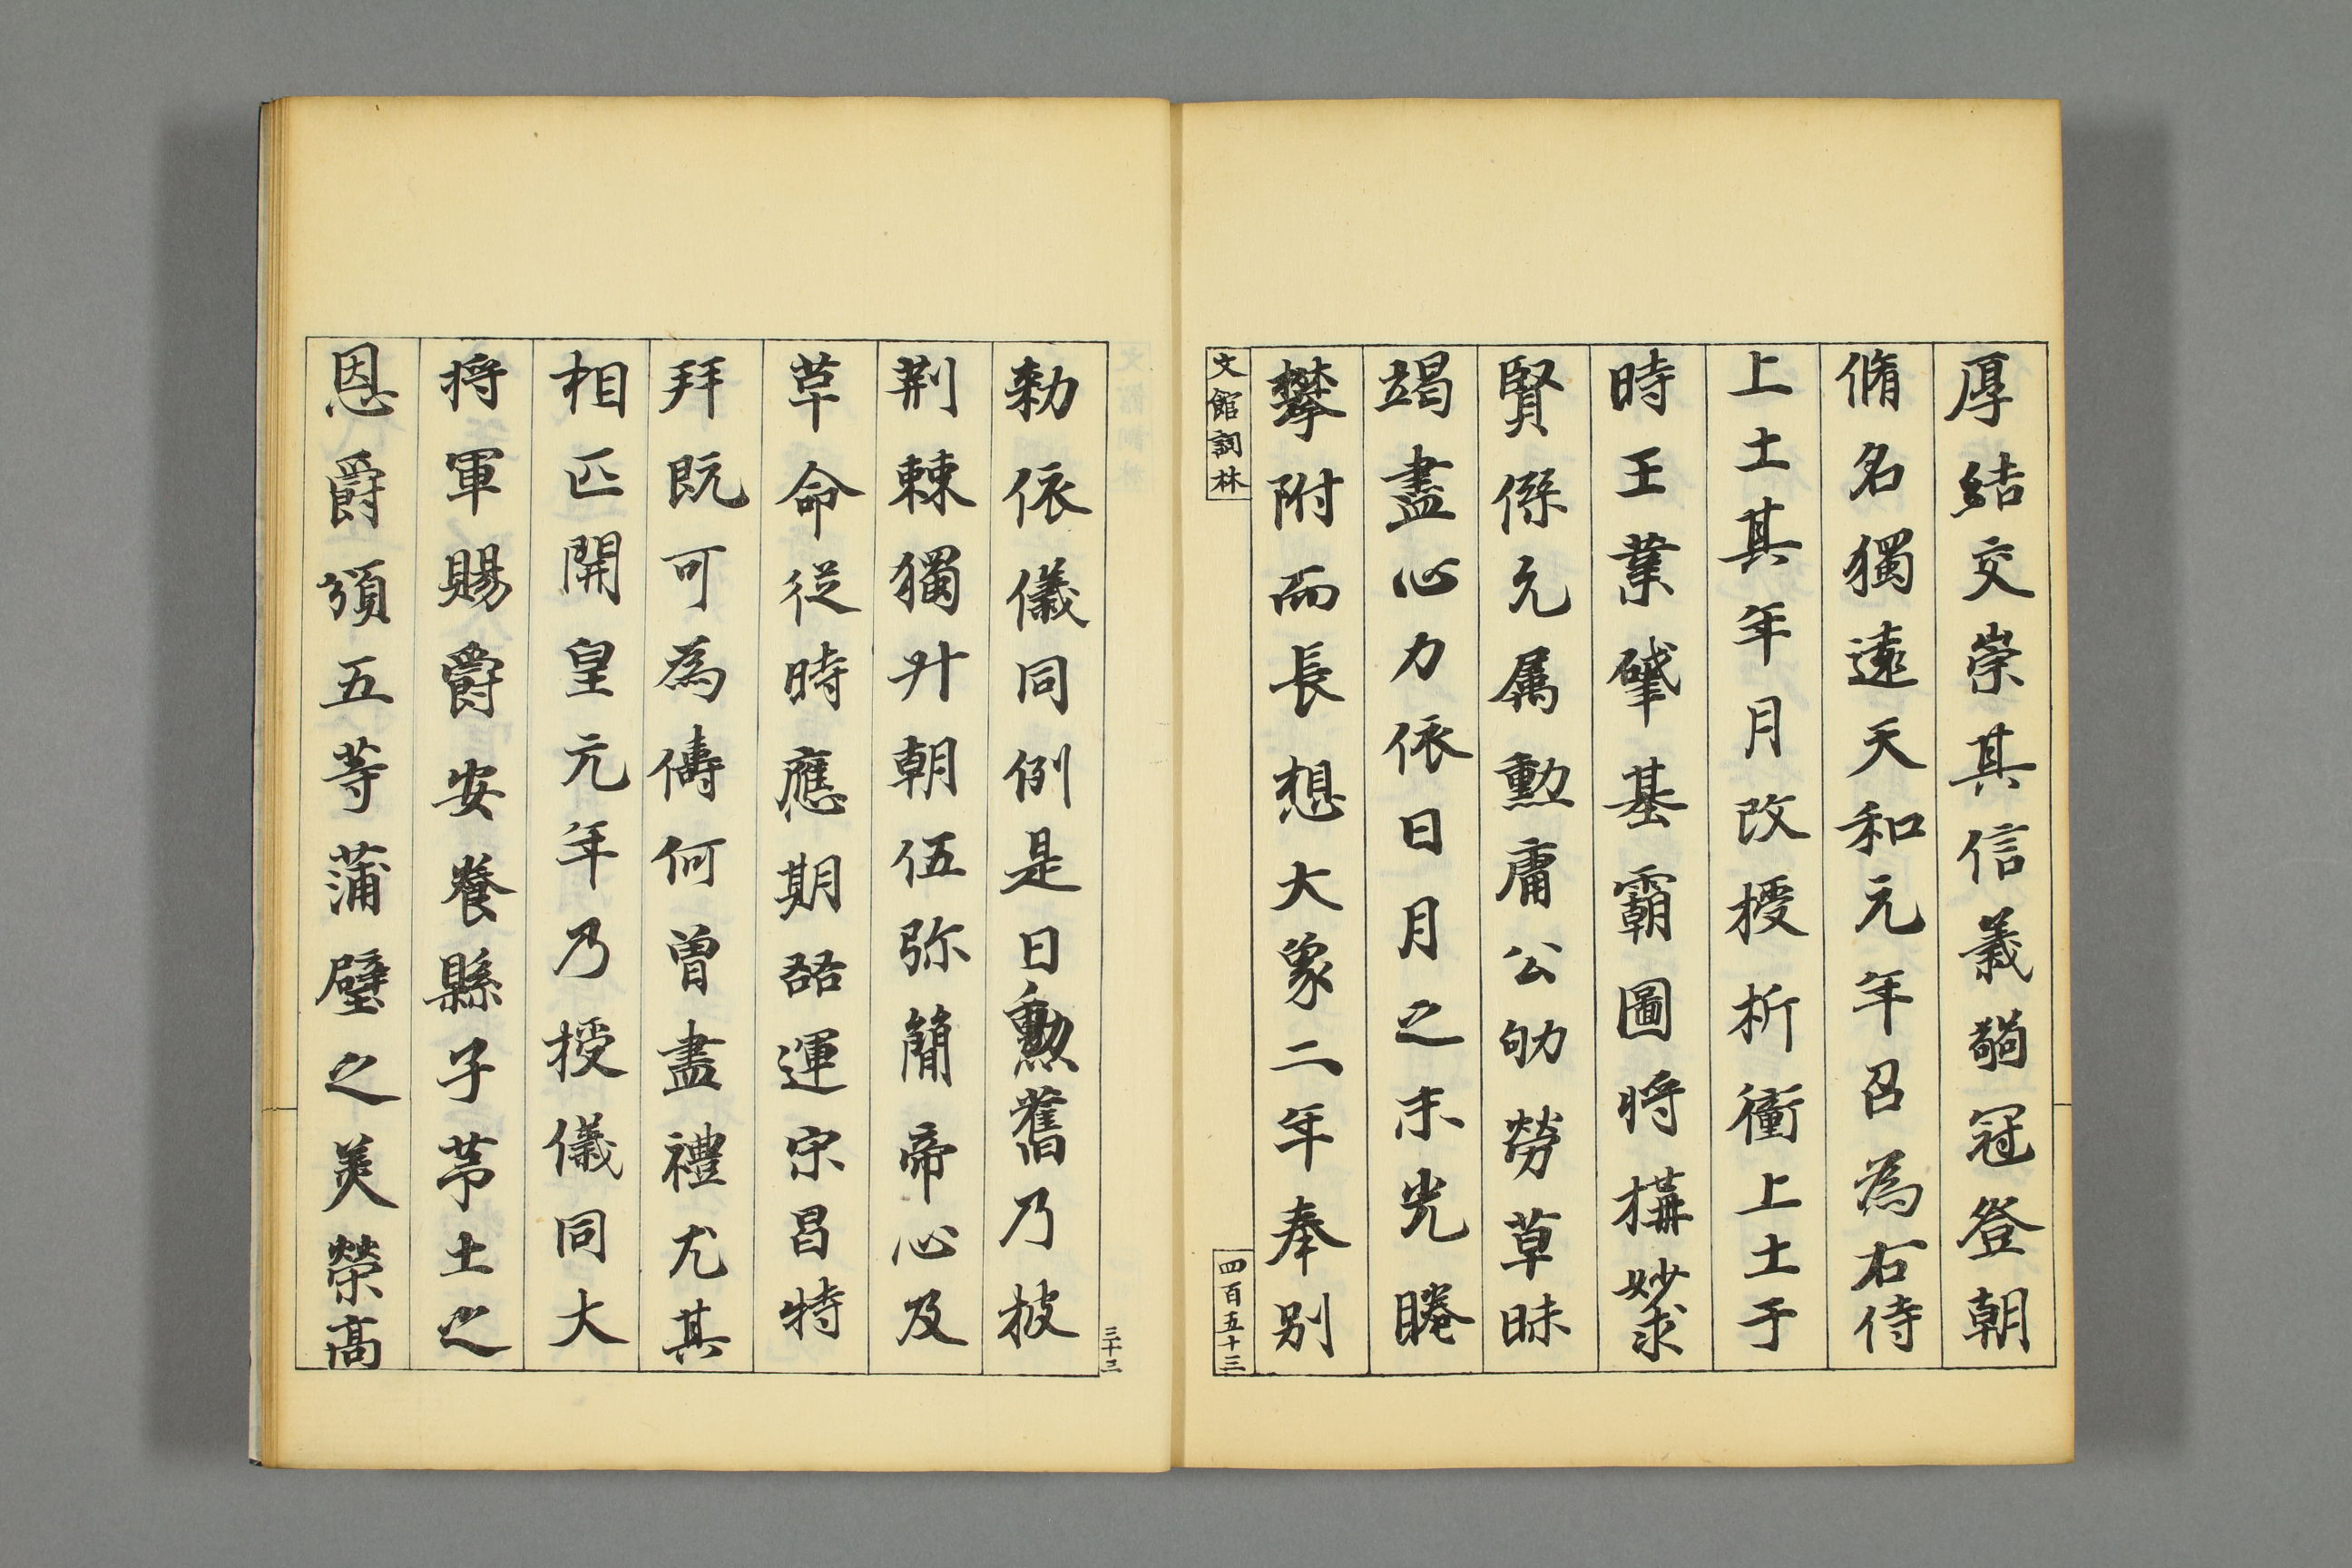 厚結交崇其信義齠冠登朝
脩名獨遠天和元年召為右侍
上士其年月改授折衝上士于
時王業肇基霸圖將構妙求
賢傑允属勳庸公劬勞草昧
竭盡心力依日月之末光睠
攀附而長想大象二年奉別
文館詞林
四百五十三
三十三
勑依儀同例是日勳舊乃披
荆棘獨升朝伍弥簡帝心及
草命從時應期啓運宋昌特
拜既可為儔何曾盡禮尤其
相匹開皇元年乃授儀同大
將軍賜爵安養縣子茅土之
恩爵頒五等蒲璧之美榮高